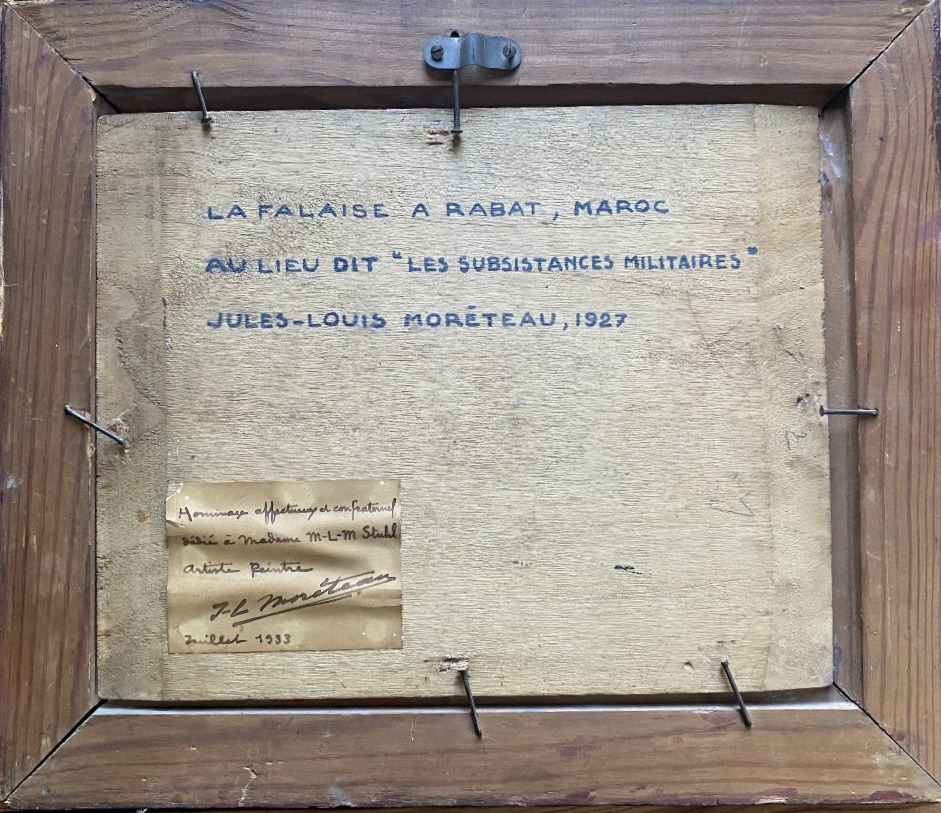 LA FALAISE A RABAT, MAROC
AU LIEU DIT "LES SUBSISTANCES MILITAIRES"
JULES-LOUIS MORÉTEAU, 1927
Hommage affectueux et confraternel
dédié à Madame M-L-M Stuhl
Artiste Peintre
J-L Moréteau
Juillet 1933